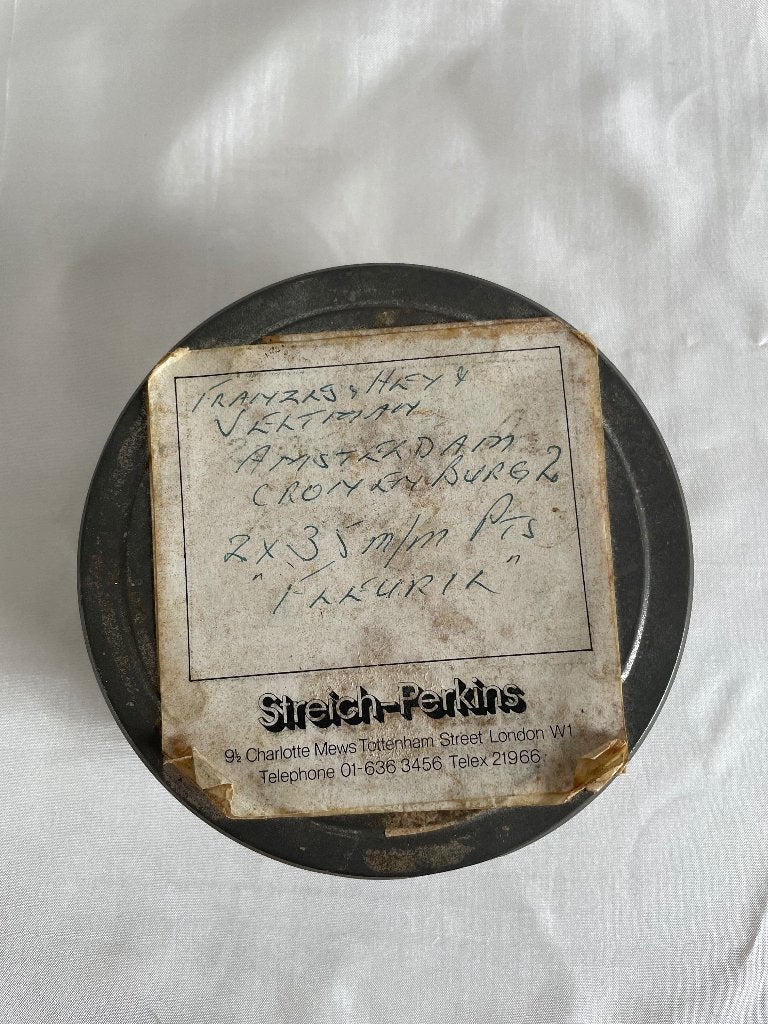 FRANZES, HEY &
VELTMAN
AMSTERDAM
CRONENBURG 2
2 x 35 m/m PTS
"FLEURIL"
Streich-Perkins
9½ Charlotte Mews Tottenham Street London W1
Telephone 01-636 3456 Telex 21966